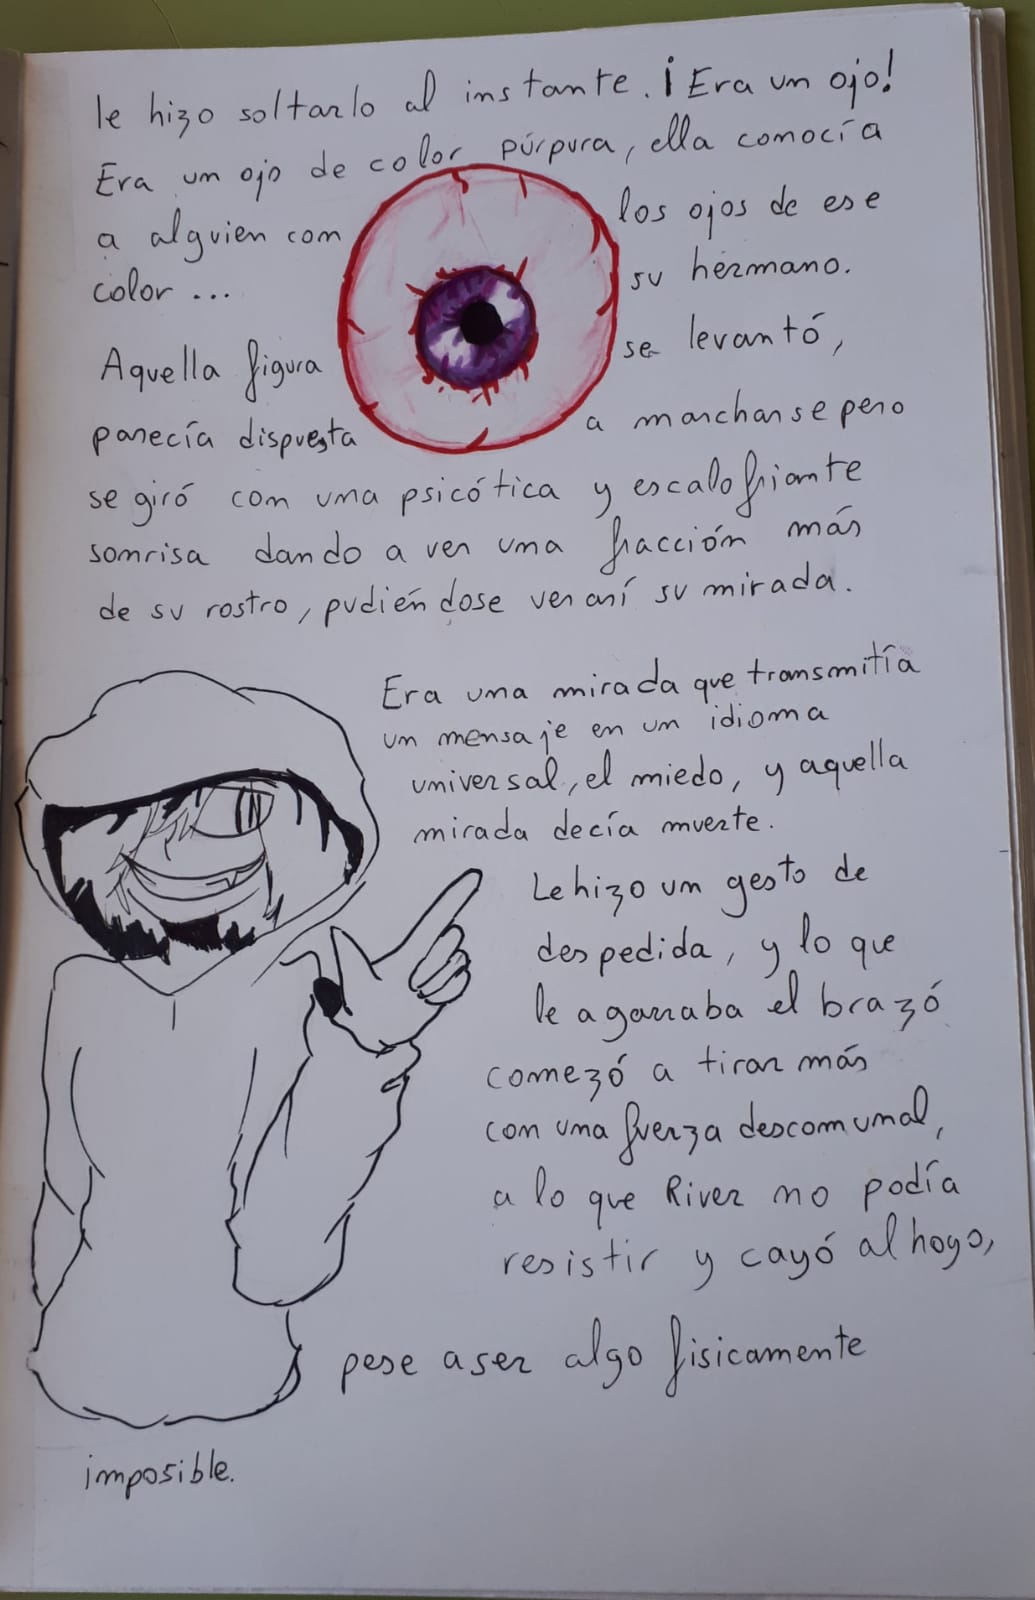 le hizo soltarlo al instante. ¡Era un ojo!
Era un ojo de color púrpura, ella conocía
a alguien con los ojos de ese
color... su hermano.
Aquella figura se levantó,
parecía dispuesta a marcharse pero
se giró con una psicótica y escalofriante
sonrisa dando a ver una fracción más
de su rostro, pudiéndose ver así su mirada.
Era una mirada que transmitía
un mensaje en un idioma
universal, el miedo, y aquella
mirada decía muerte.
Le hizo un gesto de
despedida, y lo que
le agarraba el brazó
comezó a tirar más
con una fuerza descomunal,
a lo que River no podía
resistir y cayó al hoyo,
pese a ser algo fisicamente
imposible.